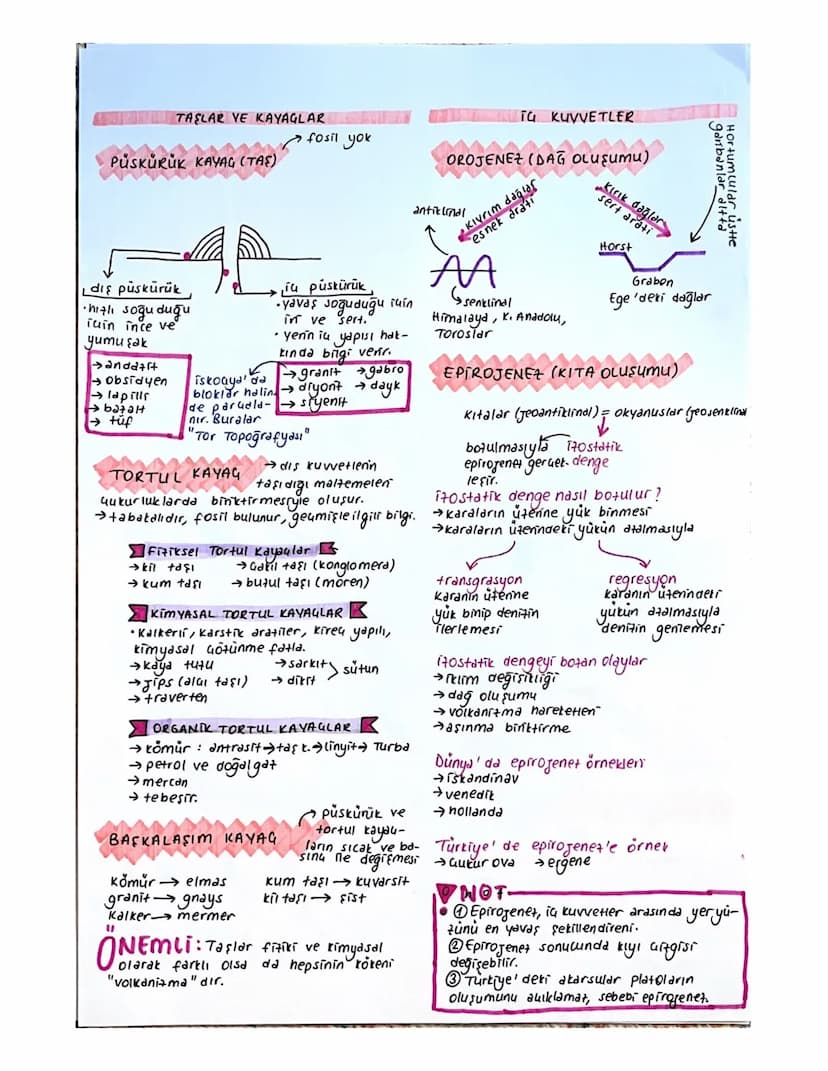 TAŞLAR VE KAYAÇLAR
PÜSKÜRÜK KAYAÇ (TAŞ)
→ fosil yok
dış püskürük
• hızlı soğuduğu
için ince ve
yumuşak
→ andazit
→ obsidyen
→ lapilli
→ bazalt
→ tüf
iç püskürük
• yavaş soğuduğu için
iri ve sert.
• yerin iç yapısı hak-
kında bilgi verir.
→ granit → gabro
→ diyorit → dayk
→ siyenit
iskoçya'da
bloklar halin
de parçala-
nır. Buralar
"Tor Topoğrafyası"
TORTUL KAYAÇ
→ dış kuvvetlerin
taşıdığı malzemeleri
çukurluklarda biriktirmesiyle oluşur.
→ tabakalıdır, fosil bulunur, geçmişle ilgili bilgi.
Fiziksel Tortul Kayaçlar
→ kil taşı → çakıl taşı (konglomera)
→ kum taşı → buzul taşı (moren)
KİMYASAL TORTUL KAYAÇLAR
• Kalkerli, karstik araziler, kireç yapılı,
kimyasal çözünme fazla.
→ kaya tuzu → sarkıt
→ jips (alçı taşı) → dikit > sütun
→ traverten
ORGANİK TORTUL KAYAÇLAR
→ kömür : antrasit → taş k. → linyit → Turba
→ petrol ve doğalgaz
→ mercan
→ tebeşir.
BAŞKALAŞIM KAYAÇ
→ püskürük ve
tortul kayaç-
ların sıcak ve ba-
sınç ile değişmesi
kömür → elmas kum taşı → kuvarsit
granit → gnays kil taşı → şist
kalker → mermer
ÖNEMLİ: Taşlar fiziki ve kimyasal
olarak farklı olsa da hepsinin kökeni
"volkanizma" dır.
İÇ KUVVETLER
OROJENEZ (DAĞ OLUŞUMU)
Kıvrım dağlar
esnek arazi
Kırık dağlar
sert arazi
Hortumcular üstte
garibanlar altta
antiklinal
senklinal
Himalaya, K. Anadolu,
Toroslar
Horst
Graben
Ege'deki dağlar
EPİROJENEZ (KITA OLUŞUMU)
Kıtalar (jeoantiklinal) = okyanuslar (jeosenklinal
bozulmasıyla izostatik
epirojenez gerçek- denge
leşir.
izostatik denge nasıl bozulur?
→ karaların üzerine yük binmesi
→ karaların üzerindeki yükün azalmasıyla
transgrasyon
karanın üzerine
yük binip denizin
ilerlemesi
regresyon
karanın üzerindeki
yükün azalmasıyla
denizin gerilemesi
izostatik dengeyi bozan olaylar
→ iklim değişikliği
→ dağ oluşumu
→ volkanizma hareketleri
→ aşınma biriktirme
Dünya'da epirojenez örnekleri
→ iskandinav
→ venedik
→ hollanda
Türkiye'de epirojenez'e örnek
→ çukur ova → ergene
NOT
• ① Epirojenez, iç kuvvetler arasında yeryü-
zünü en yavaş şekillendireni.
② Epirojenez sonucunda kıyı çizgisi
değişebilir.
③ Türkiye'deki akarsular platoların
oluşumunu açıklamaz, sebebi epirojenez.